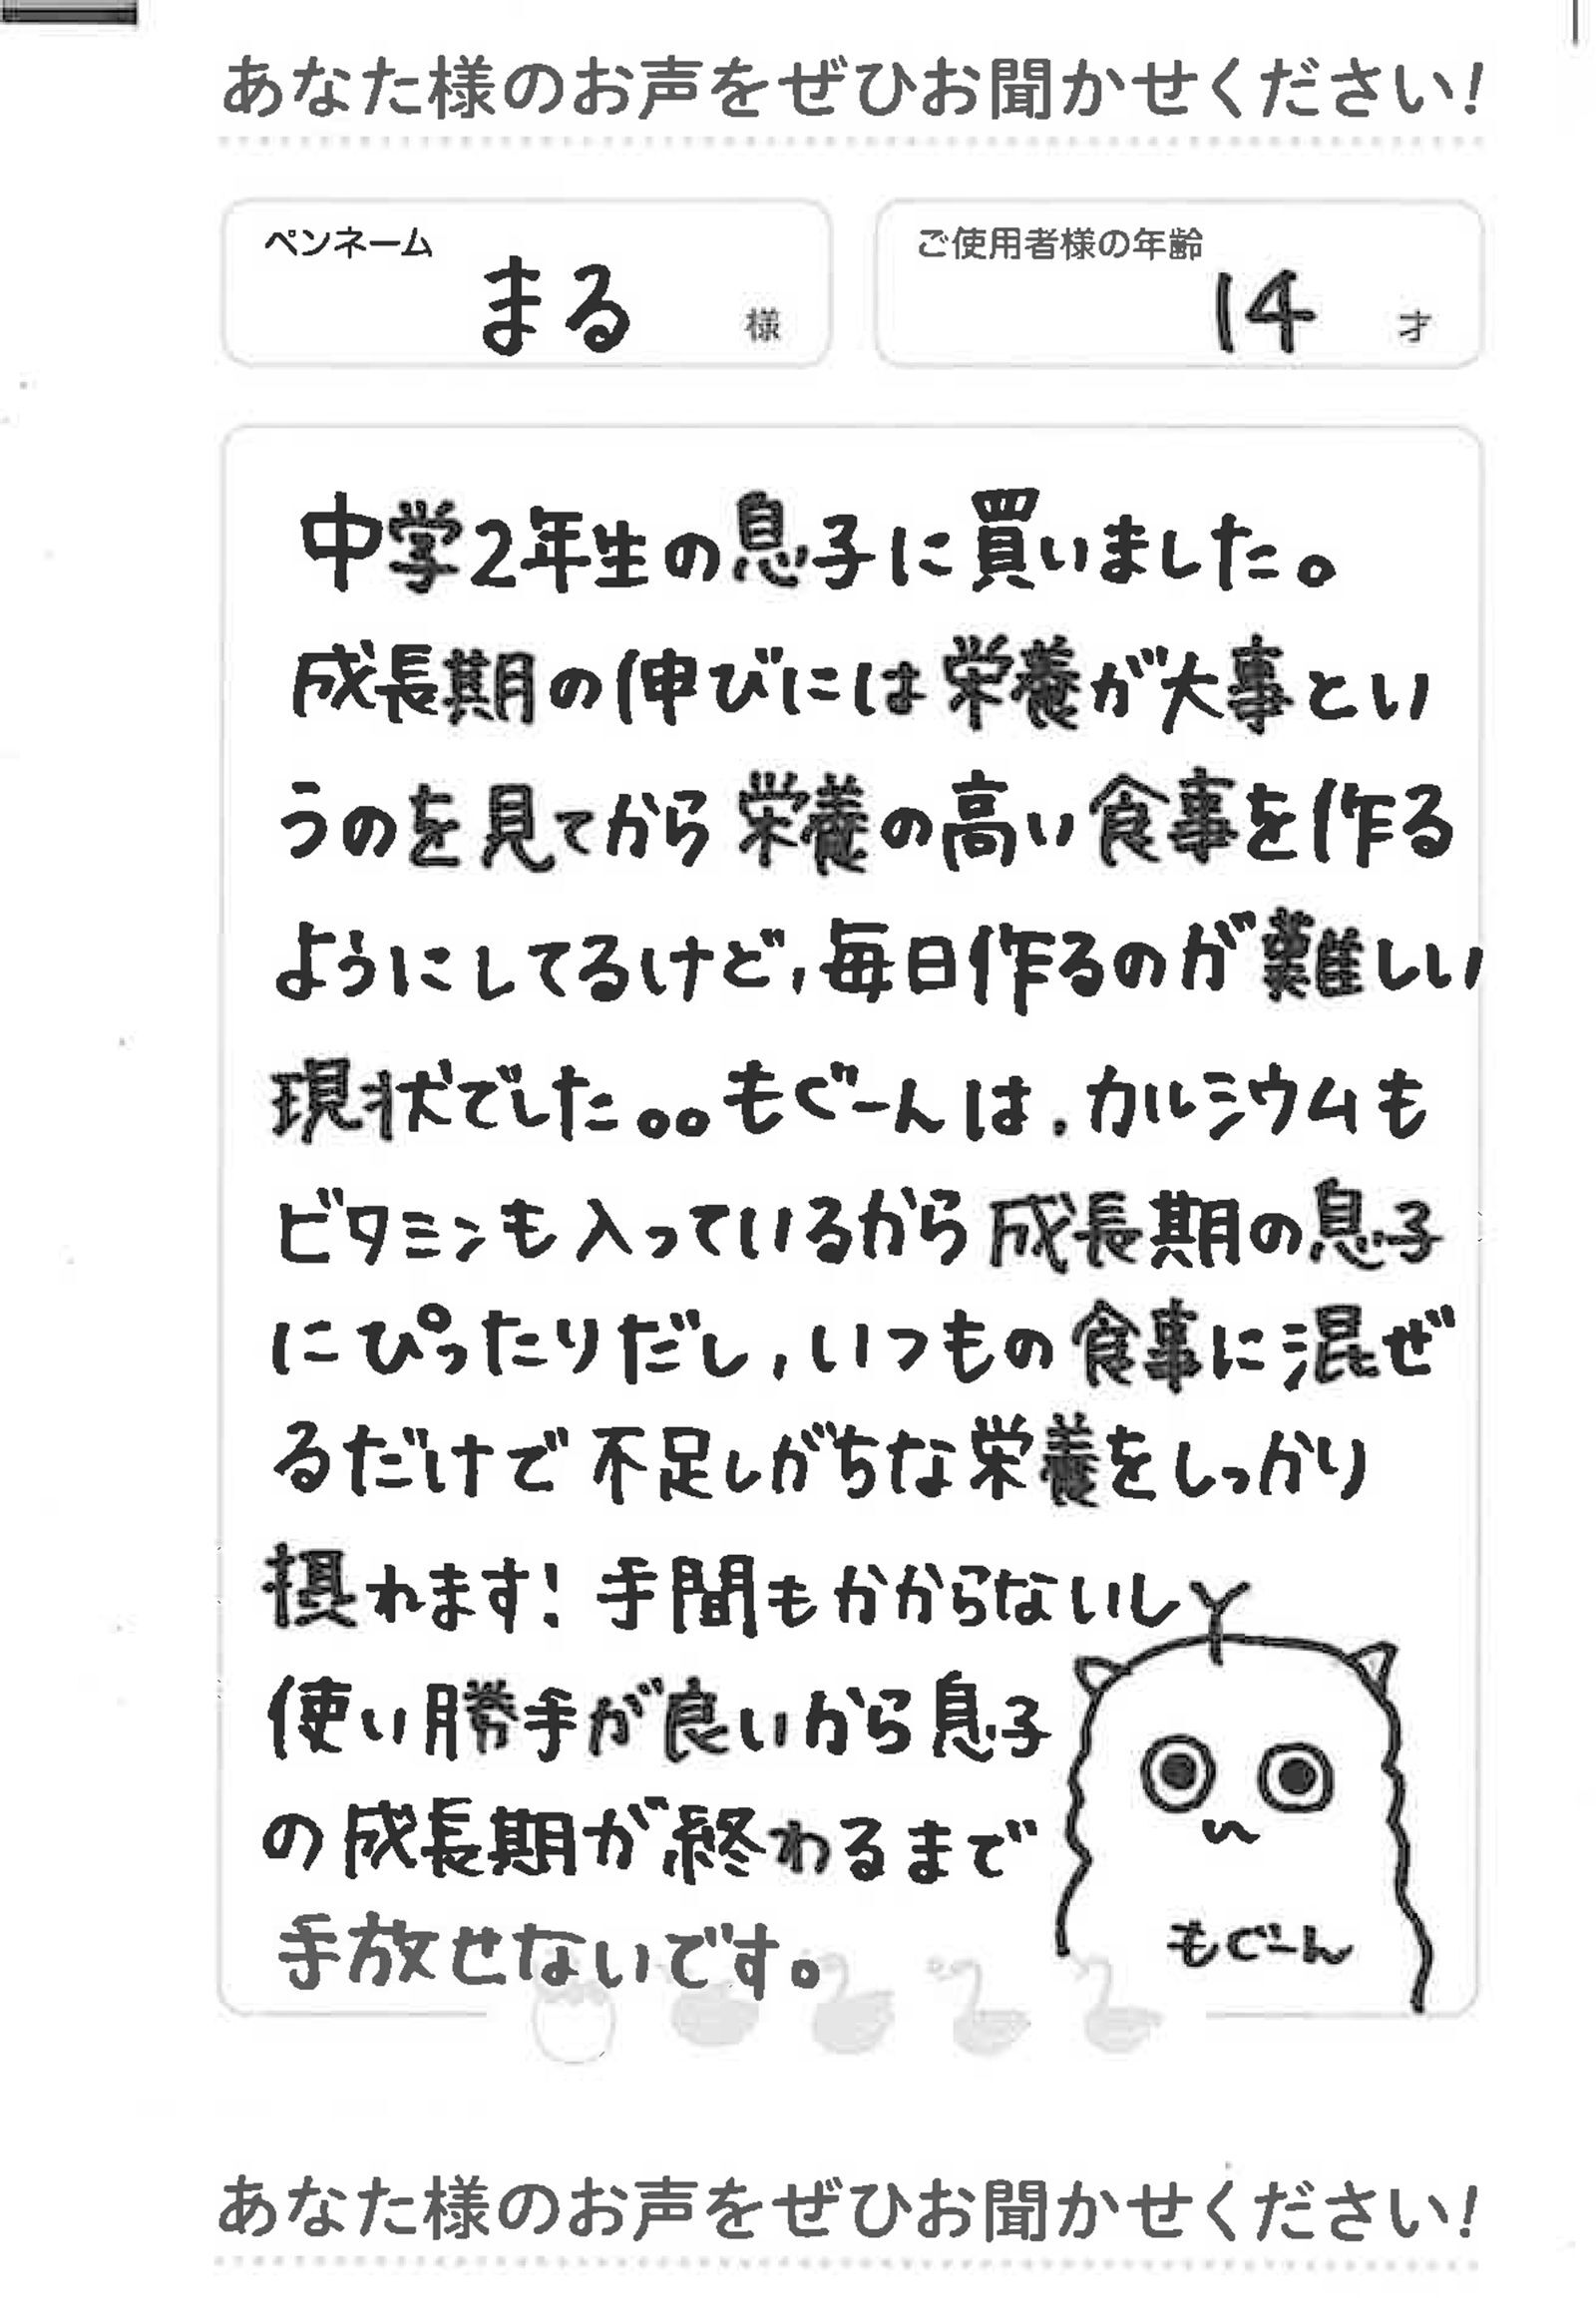 あなた様のお声をぜひお聞かせください!
ペンネーム
まる 様
ご使用者様の年齢
14 才
中学2年生の息子に買いました。
成長期の伸びには栄養が大事とい
うのを見てから栄養の高い食事を作る
ようにしてるけど,毎日作るのが難しい
現状でした。。もぐーんは,カルシウムも
ビタミンも入っているから成長期の息子
にぴったりだし,いつもの食事に混ぜ
るだけで不足しがちな栄養をしっかり
摂れます!手間もかからないし
使い勝手が良いから息子
の成長期が終わるまで
手放せないです。
もぐーん
あなた様のお声をぜひお聞かせください!